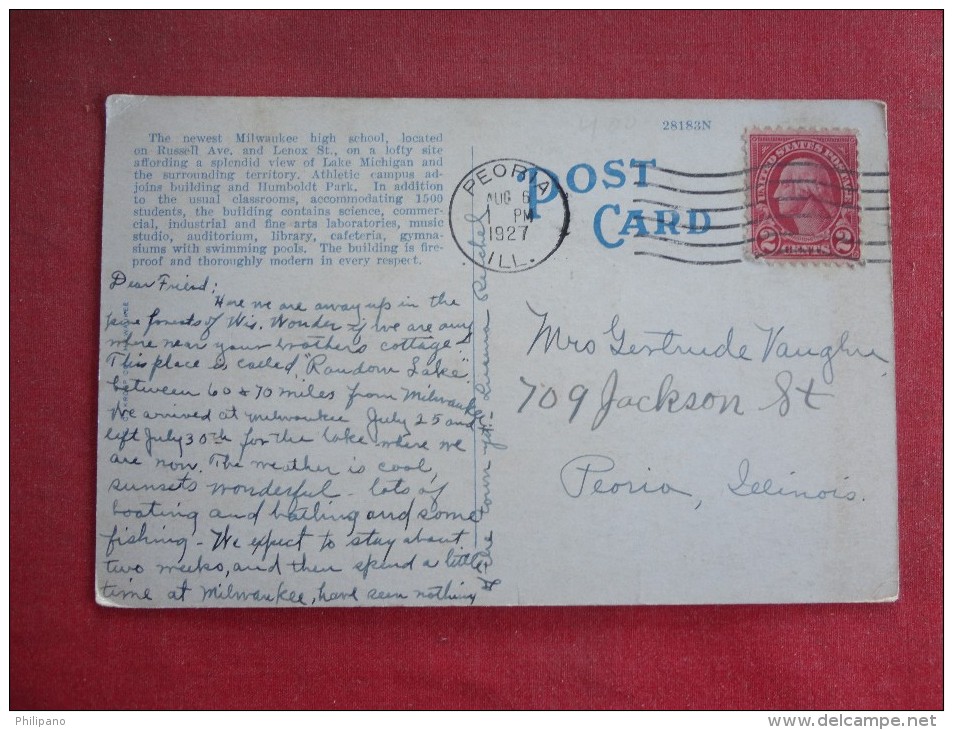 The newest Milwaukee high school, located
on Russell Ave. and Lenox St., on a lofty site
affording a splendid view of Lake Michigan and
the surrounding territory. Athletic campus ad-
joins building and Humboldt Park. In addition
to the usual classrooms, accommodating 1500
students, the building contains science, commer-
cial, industrial and fine arts laboratories, music
studio, auditorium, library, cafeteria, gymna-
siums with swimming pools. The building is fire-
proof and thoroughly modern in every respect.
Dear Friend:
Here we are away up in the
pine forests of Wis. Wonder if we are any
where near your brothers cottage -
This place is called "Random Lake"
between 60 & 70 miles from Milwaukee
We arrived at Milwaukee July 25 and
left July 30th for the lake where we
are now. The weather is cool,
sunsets wonderful - lots of
boating and bathing and some
fishing - We expect to stay about
two weeks, and then spend a little
time at Milwaukee, have seen nothing
of the town yet.
28183N
POST
CARD
PEORIA
AUG 6
1 PM
1927
ILL.
UNITED STATES POSTAGE
2 2
Mrs Gertrude Vaughn
709 Jackson St
Peoria, Illinois.
Philipano
www.delcampe.net